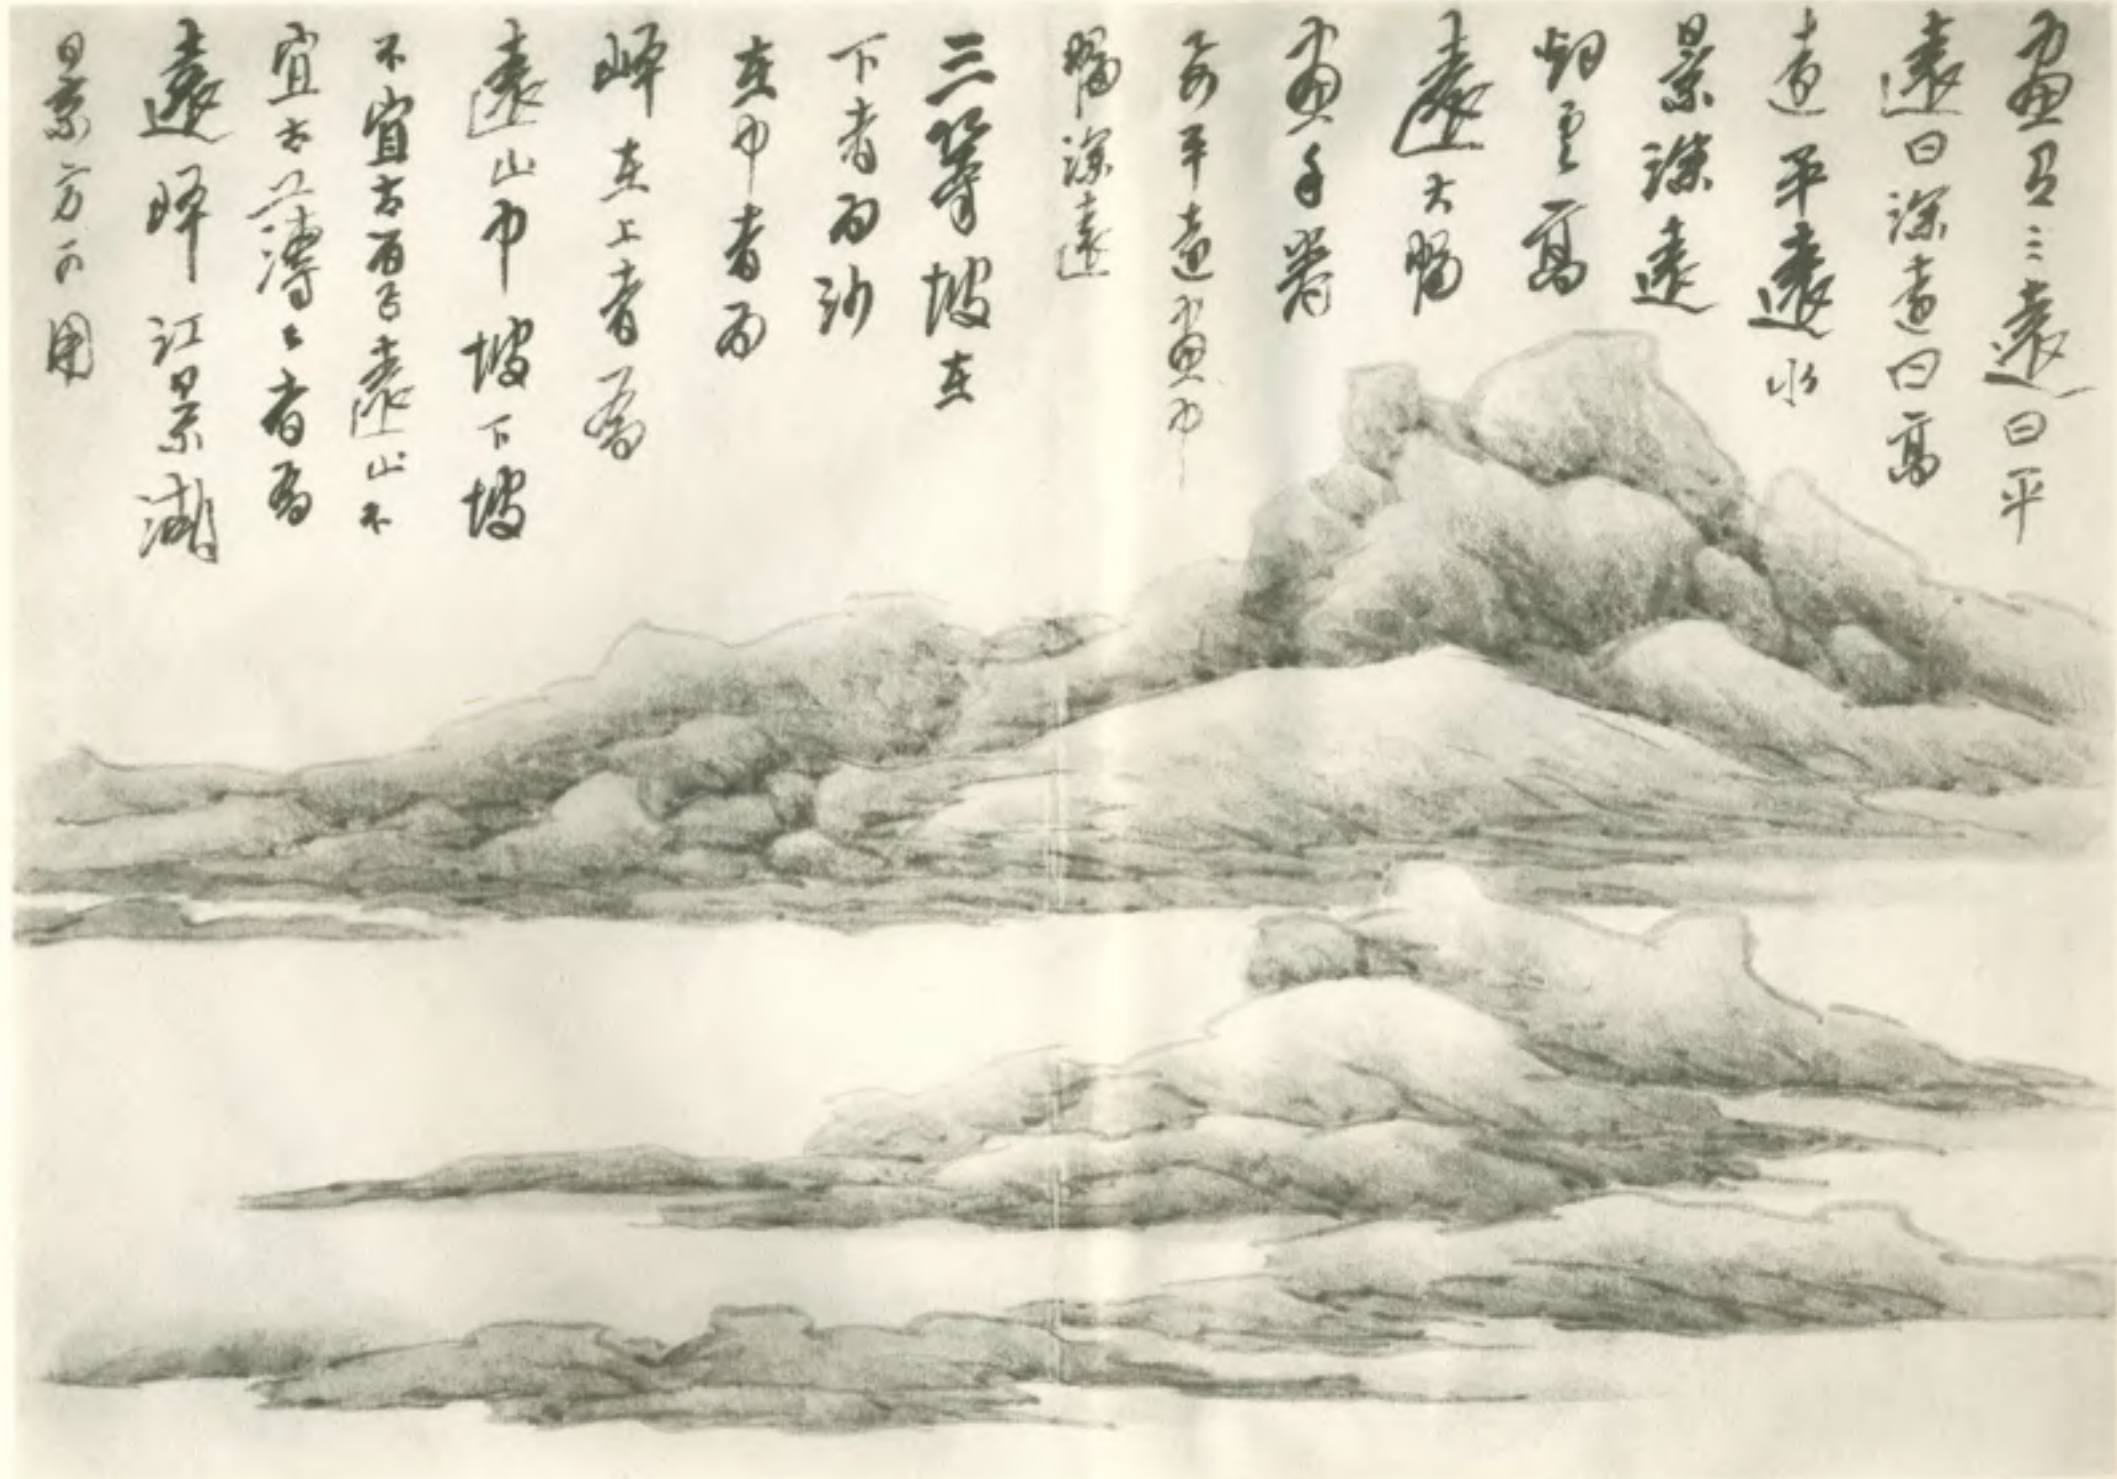 畫有三遠曰平
遠曰深遠曰高
遠平遠水
景深遠
烟雲高
遠大幅
畫手卷
要平遠畫中
幅深遠
三等坡在
下者為沙
在中者為
峰在上者為
遠山中坡下坡
不宜太遠山不
宜太薄〻者為
遠峰江景湖
景方可用